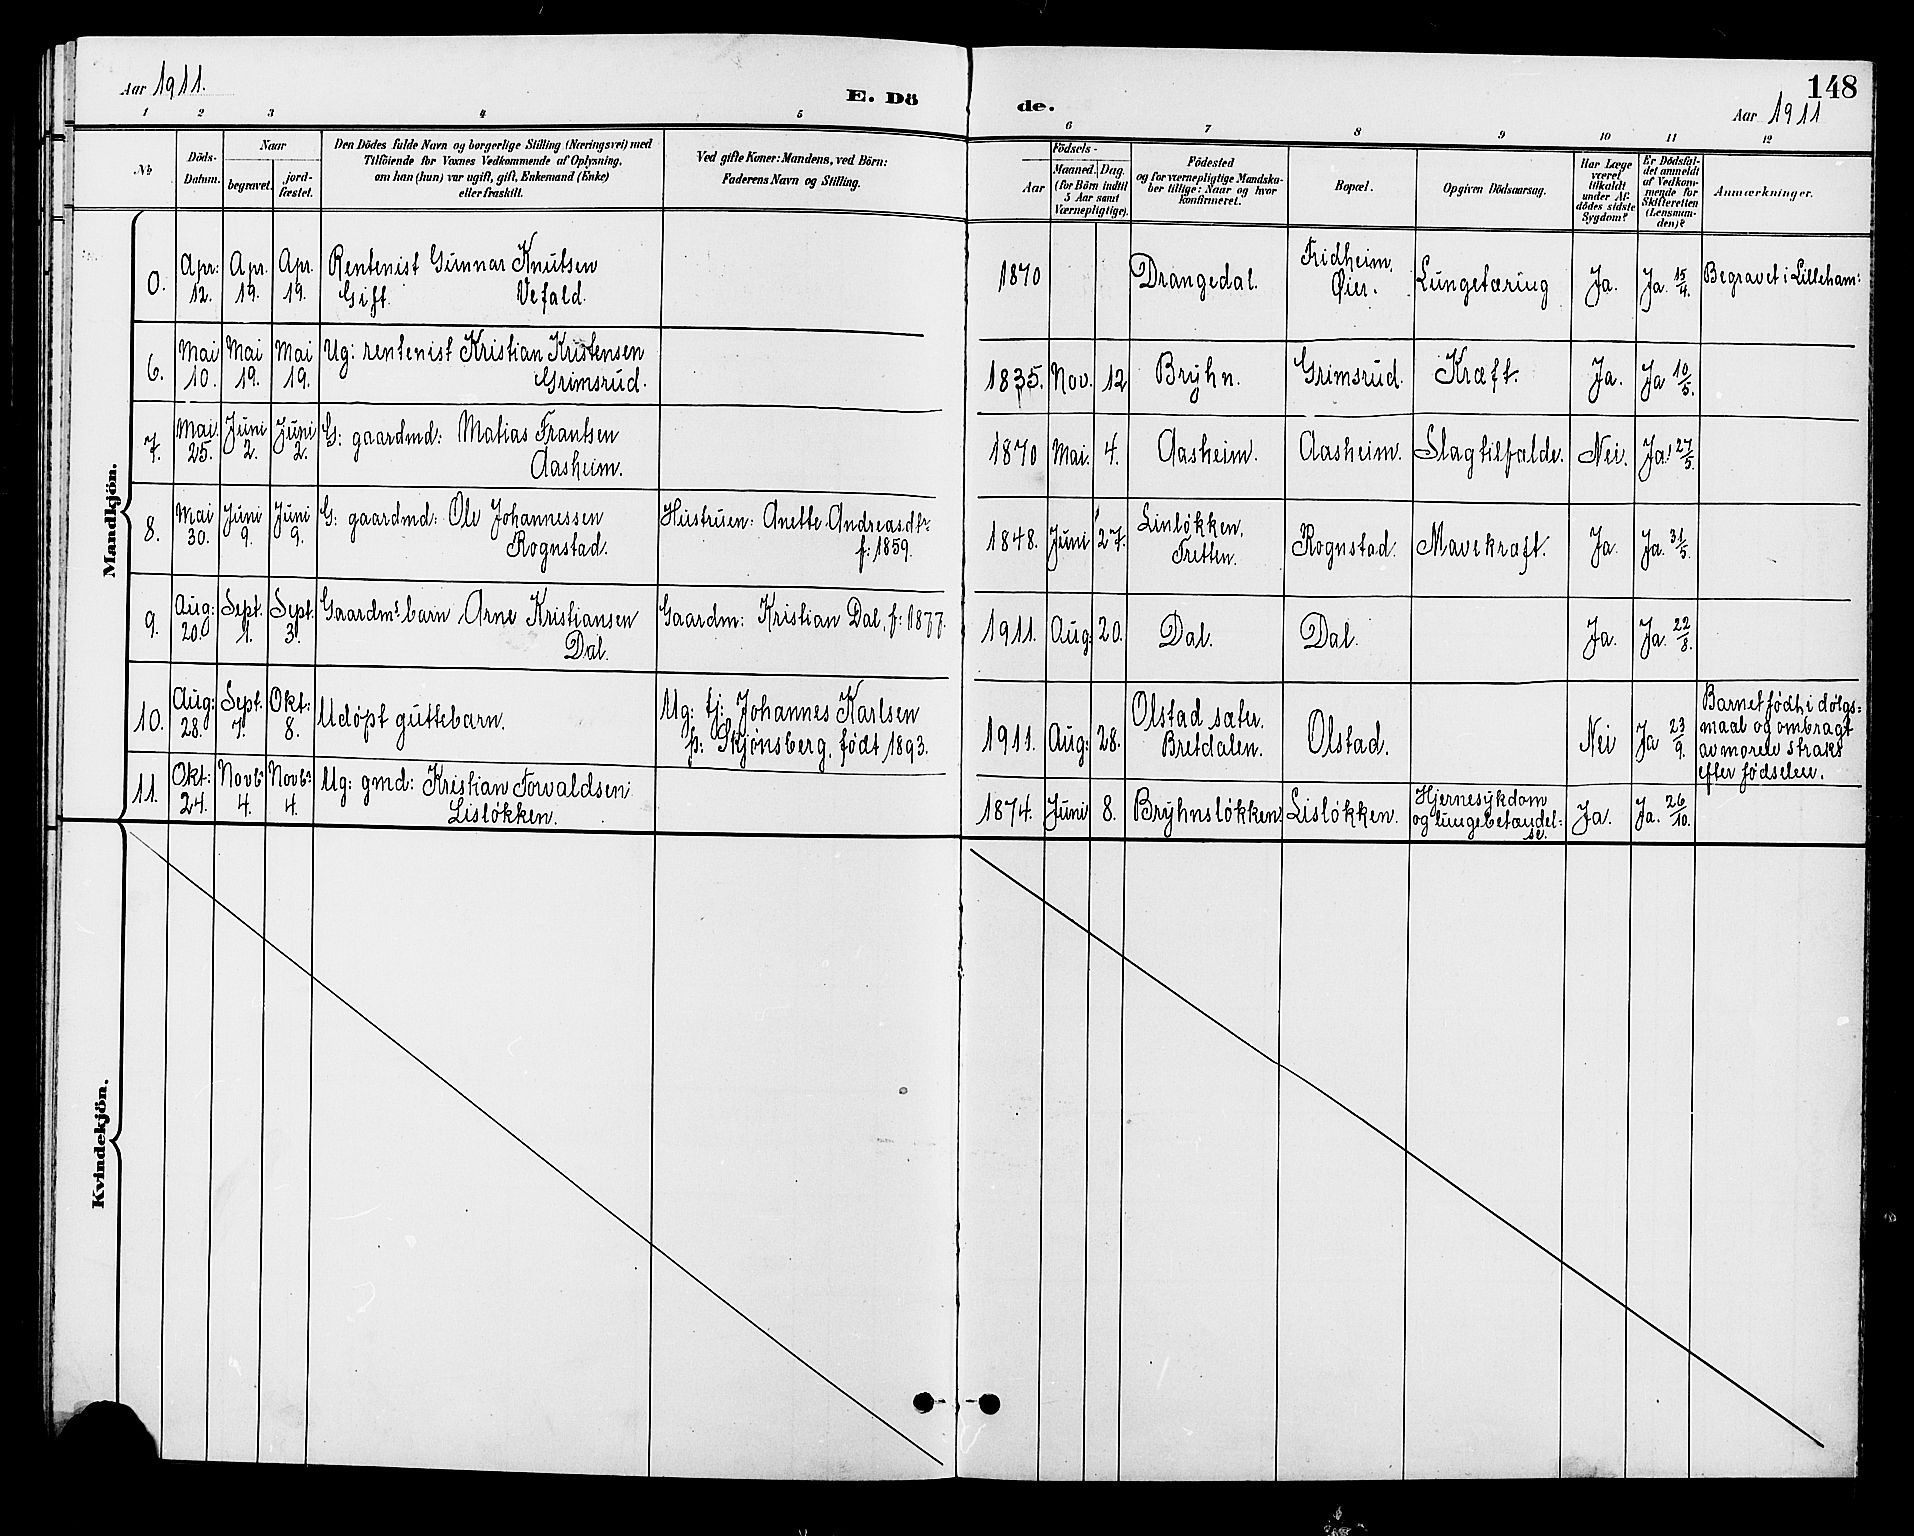 Aar 1911.
E. Dö
de.
148
Aar 1911
1 2 3 4 5 6 7 8 9 10 11 12
No
Döds-
Datum.
Naar
begravet.
jord-
fæstet.
Den Dödes fulde Navn og borgerlige Stilling (Næringsvei) med
Tilföiende for Voxnes Vedkommende af Oplysning,
om han (hun) var ugift, gift, Enkemand (Enke)
eller fraskilt.
Ved gifte Koner: Mandens, ved Börn:
Faderens Navn og Stilling.
Födsels-
Aar
Maaned. Dag.
(for Börn indtil
5 Aar samt
Værnepligtige).
Födested
og for værnepligtige Mandska-
ber tillige: Naar og hvor
konfirmeret.
Bopæl.
Opgiven Dödsaarsag.
Har Læge
været
tilkaldt
under Af-
dödes sidste
Sygdom?
Er Dödsfal-
det anmeldt
af Vedkom-
mende for
Skifteretten
(Lensman-
den)?
Anmærkninger.
Mandkjön.
0. Apr: 12. Apr. 19. Apr. 19. Rentenist Gunnar Knutsen
Gift. Vefald.
1870 Drangedal. Fridheim, Øier. Lungetæring Ja. Ja. 15/4. Begravet i Lilleham:
6. Mai 10. Mai 19. Mai 19. Ug: rentenist Kristian Kristensen
Grimsrud.
1835. Nov. 12 Bryhn. Grimsrud. Kræft. Ja. Ja 10/5.
7. Mai. 25. Juni 2. Juni 2. G: gaardmd: Matias Frantsen
Aasheim.
1870 Mai. 4. Aasheim. Aasheim. Slagtilfælde. Nei. Ja! 27/5.
8. Mai 30. Juni 9. Juni 9. G: gaardmd: Ole Johannessen
Rognstad.
Hustruen: Anette Andreasdtr
f: 1859.
1848. Juni 27. Linløkken, Tretten. Rognstad. Mavekræft. Ja. Ja. 31/5.
9. Aug: 20. Sept. 1. Sept. 3. Gaardms barn Arne Kristiansen
Dal.
Gaardm: Kristian Dal, f: 1877.
1911. Aug: 20. Dal. Dal. Ja. Ja. 22/8.
10. Aug: 28. Sept. 7. Okt: 8. Udøpt guttebarn.
Ug: tj: Johannes Karlsen
p: Skjønsberg, født 1893.
1911. Aug: 28. Olstad sæter. Bretdalen. Olstad. Nei Ja 23/9.
Barnet født i dølgs=
maal og ombragt
av moren straks
efter fødselen.
11. Okt: 24. Novbr 4. Novbr 4. Ug: gmd: Kristian Torvaldsen
Lisløkken.
1874. Juni 8. Bryhnsløkken Lisløkken. Hjernesykdom
og lungebetændel=
se. Ja. Ja. 26/10.
Kvindekjön.